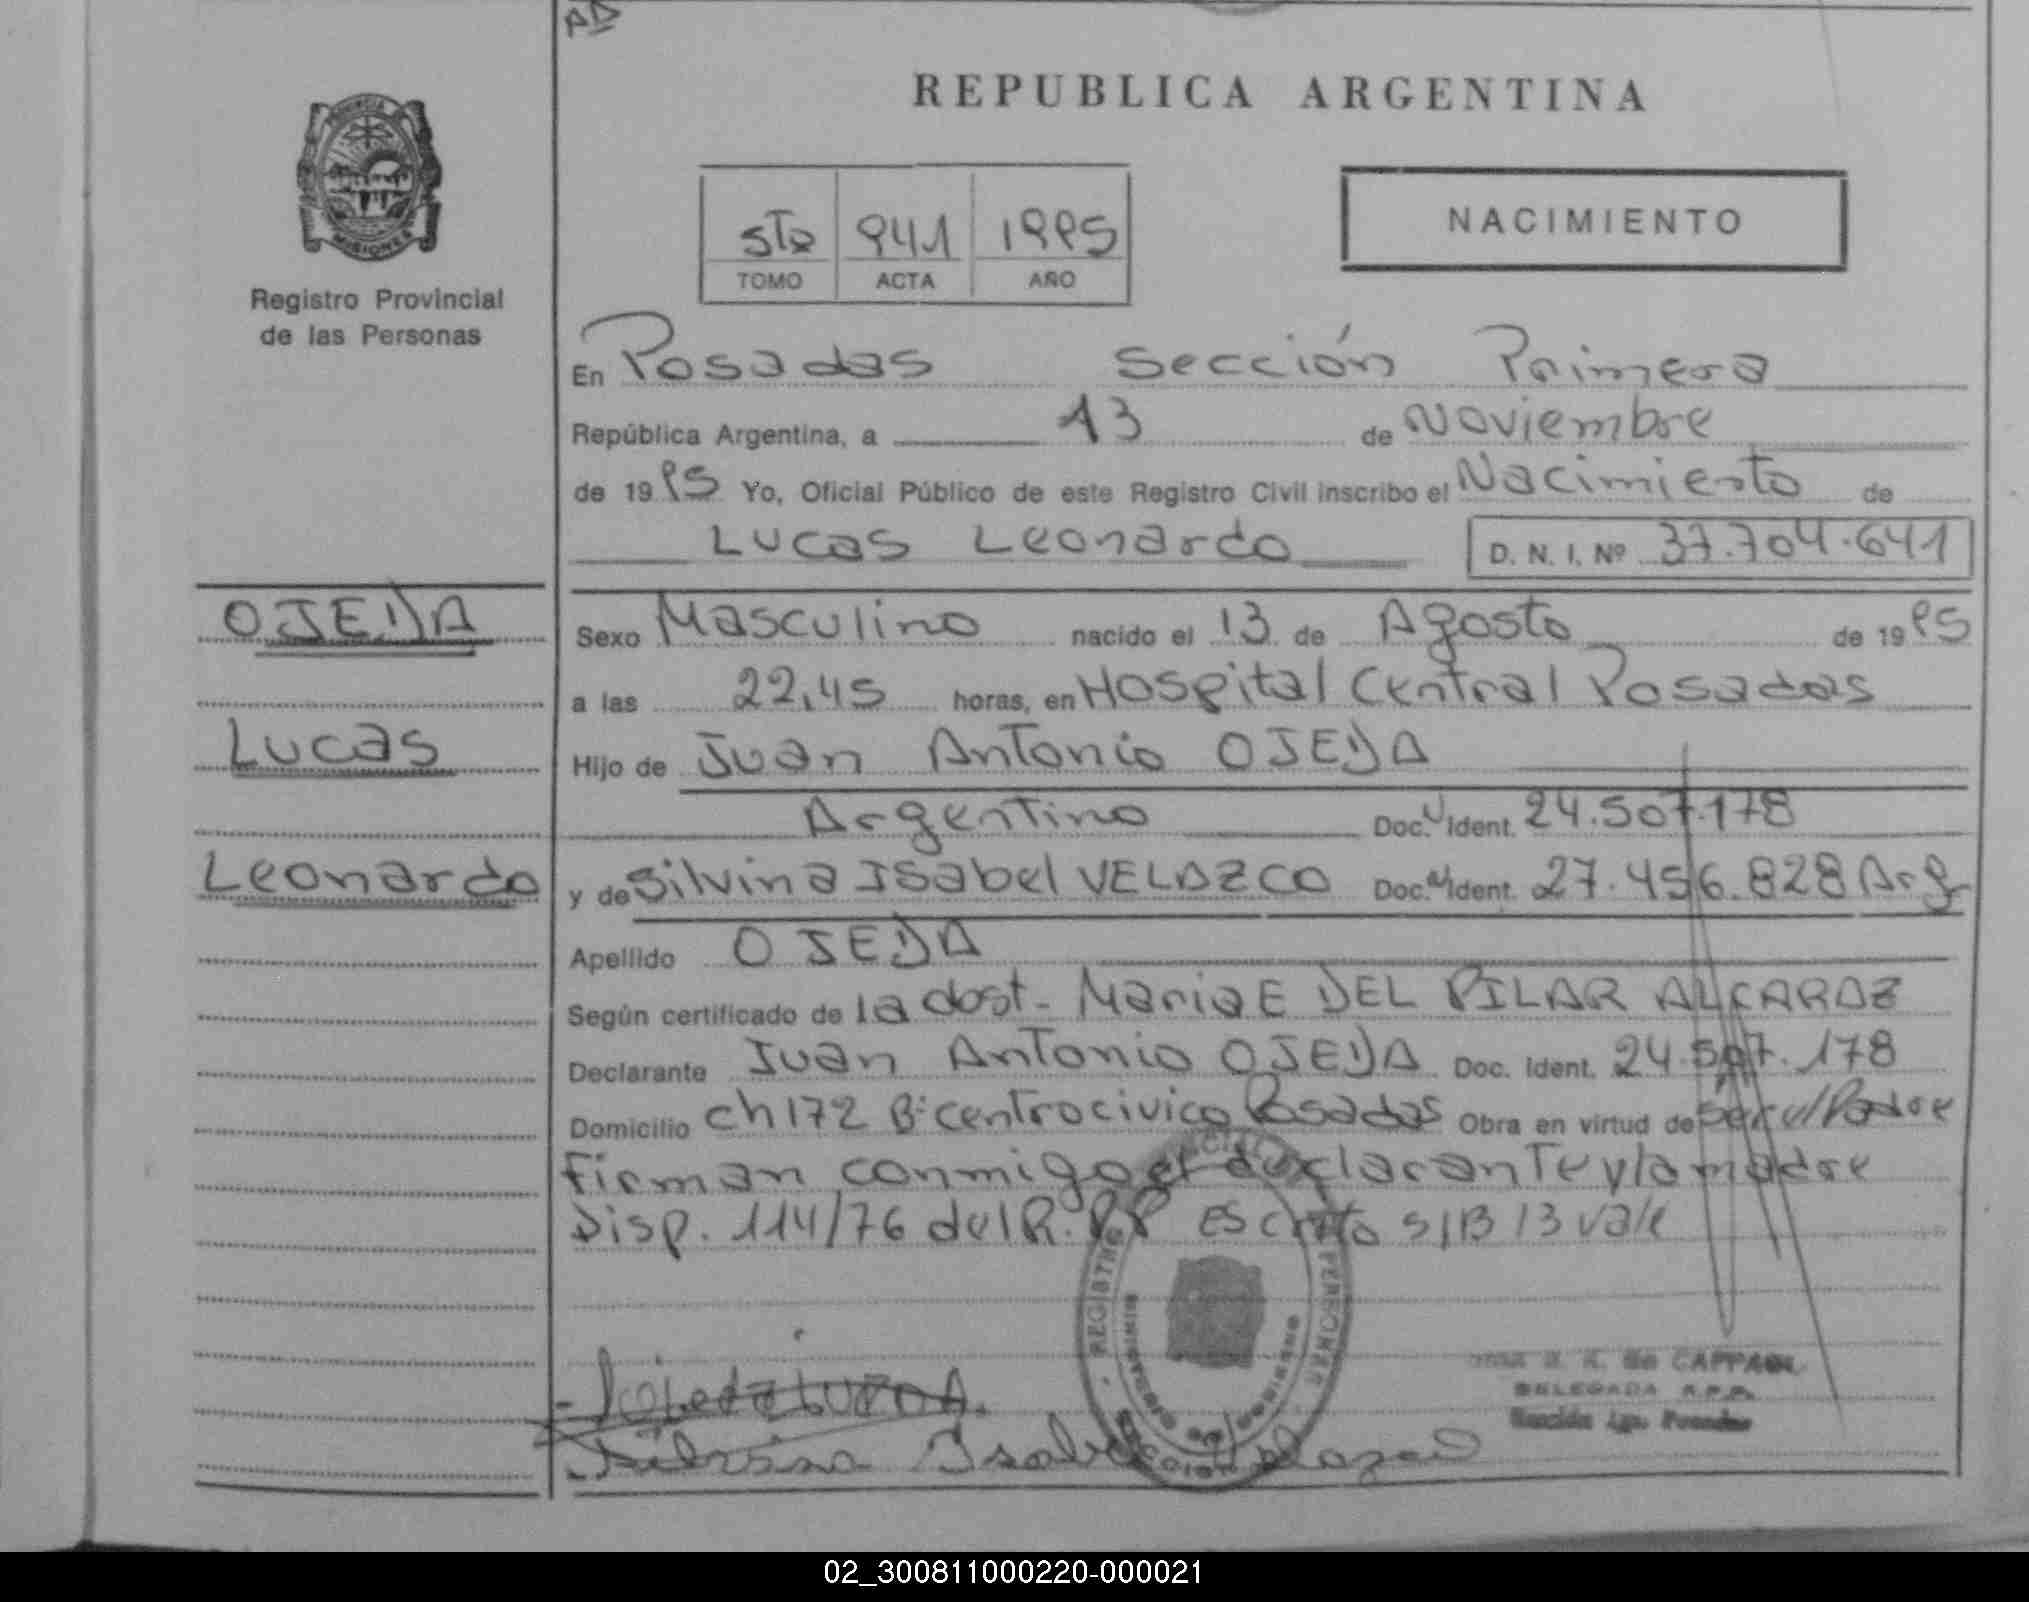 AD
REPUBLICA ARGENTINA
PROVINCIA
MISIONES
Registro Provincial
de las Personas
5To 941 1995
TOMO ACTA AÑO
NACIMIENTO
En Posadas Sección Primera
República Argentina, a 13 de Noviembre
de 1995 Yo, Oficial Público de este Registro Civil inscribo el Nacimiento de
Lucas Leonardo D. N. I. Nº 37.704.641
OJEDA
Lucas
Leonardo
Sexo Masculino nacido el 13 de Agosto de 1995
a las 22,45 horas, en Hospital Central Posadas
Hijo de Juan Antonio OJEDA
Argentino Doc. Ident. 24.507.178
y de Silvina Isabel VELAZCO Doc. Ident. 27.456.828 Arg
Apellido OJEDA
Según certificado de la obst. Maria E DEL PILAR ALCARAZ
Declarante Juan Antonio OJEDA Doc. Ident. 24.507.178
Domicilio ch 172 Bº centrocivico Posadas Obra en virtud de ser el Padre
Firman conmigo el declarante y la madre
Disp. 114/76 del R.P.P Escrito S/B 13 vale
REGISTRO PERSONAS
MINISTERIO DE GOBIERNO
de CAPPAGL
DELEGADA R.P.P.
Sección 1ra. Posadas
Silvina Isabel Velazco
02_300811000220-000021